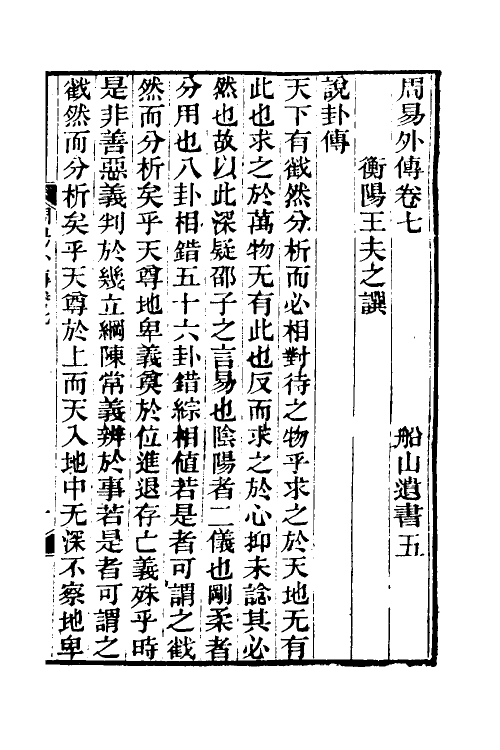 周易外傳卷七 船山遺書五
衡陽王夫之譔
說卦傳
天下有截然分析而必相對待之物乎求之於天地无有
此也求之於萬物无有此也反而求之於心抑未諗其必
然也故以此深疑邵子之言易也陰陽者二儀也剛柔者
分用也八卦相錯五十六卦錯綜相值若是者可謂之截
然而分析矣乎天尊地卑義奠於位進退存亡義殊乎時
是非善惡義判於幾立綱陳常義辨於事若是者可謂之
截然而分析矣乎天尊於上而天入地中无深不察地卑